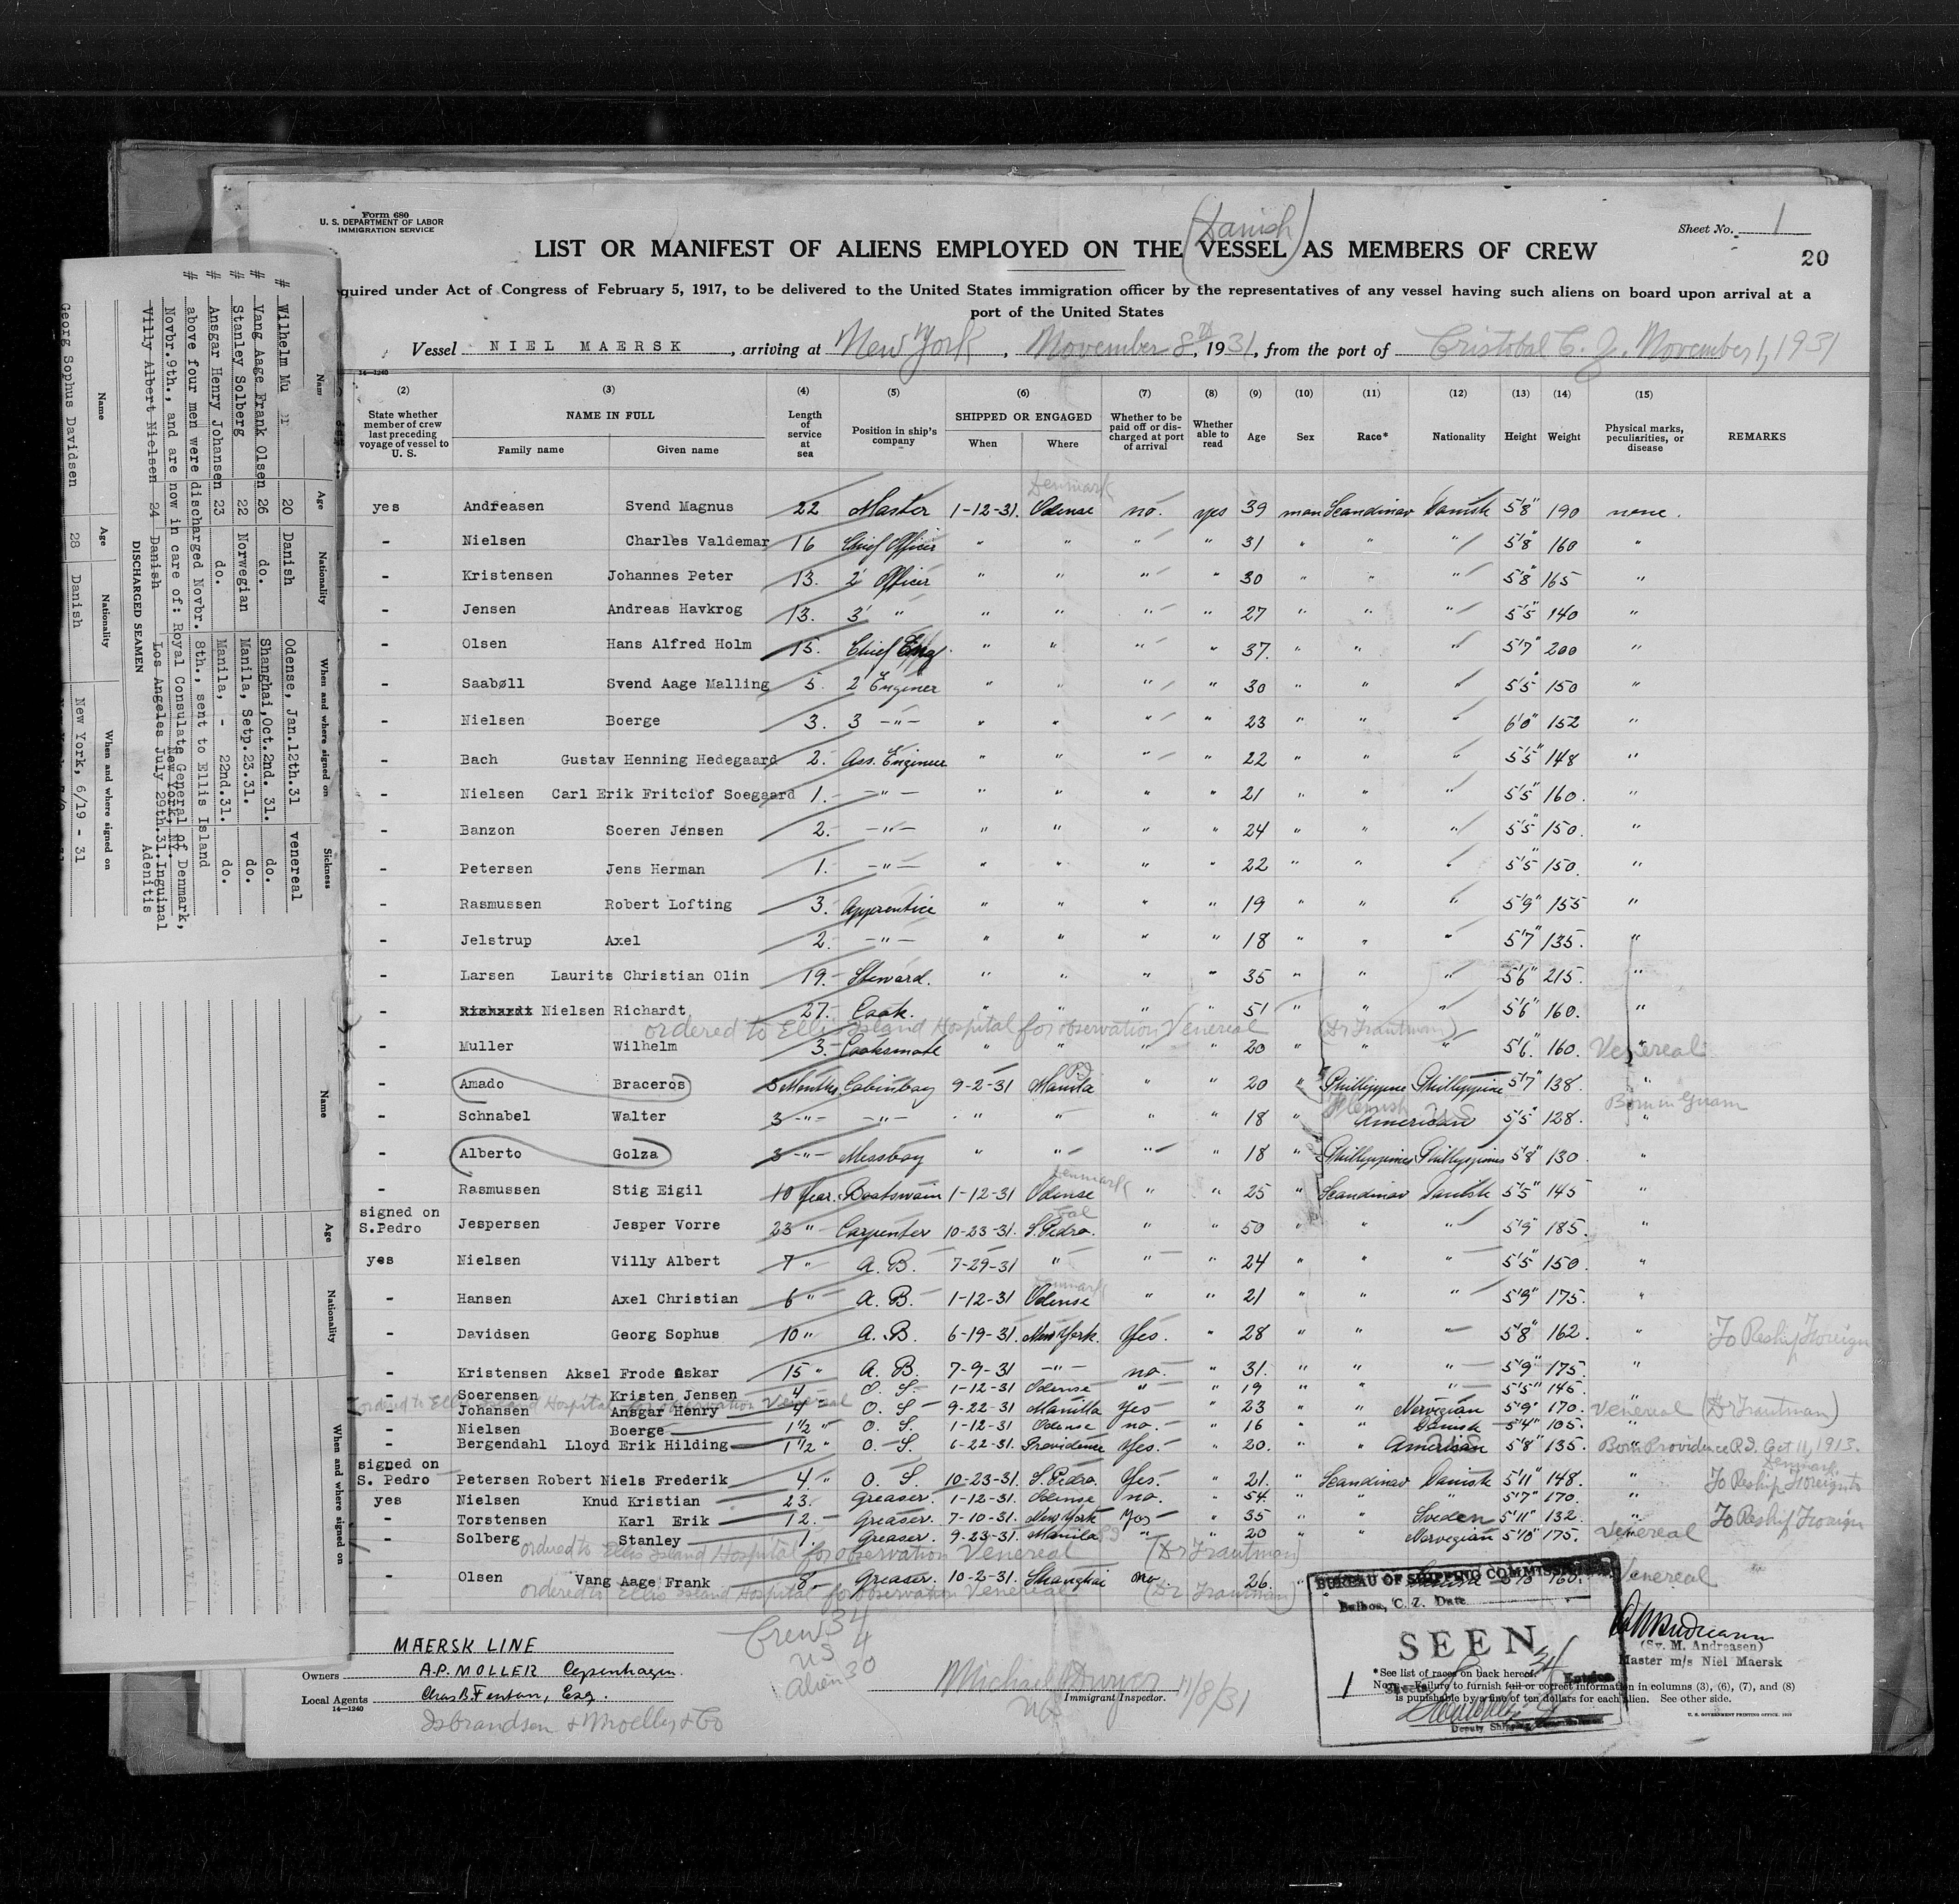 Form 680
U. S. DEPARTMENT OF LABOR
IMMIGRATION SERVICE
(Danish)
Sheet No. 1
LIST OR MANIFEST OF ALIENS EMPLOYED ON THE VESSEL AS MEMBERS OF CREW
20
quired under Act of Congress of February 5, 1917, to be delivered to the United States immigration officer by the representatives of any vessel having such aliens on board upon arrival at a
port of the United States
Vessel NIEL MAERSK, arriving at New York, November 8th, 1931, from the port of Cristobal C. Z. November 1, 1931
14—1240
(2) (3) (4) (5) (6) (7) (8) (9) (10) (11) (12) (13) (14) (15)
State whether member of crew last preceding voyage of vessel to U. S.
NAME IN FULL
Family name Given name
Length of service at sea
Position in ship's company
SHIPPED OR ENGAGED
When Where
Whether to be paid off or discharged at port of arrival
Whether able to read
Age Sex Race* Nationality Height Weight
Physical marks, peculiarities, or disease
REMARKS
Denmark
yes Andreasen Svend Magnus 22 Master 1-12-31. Odense no. yes 39 man Scandinav Danish 5'8" 190 none.
- Nielsen Charles Valdemar 16 Chief Officer " " " " 31 " " " 5'8" 160 "
- Kristensen Johannes Peter 13. 2' Officer " " " " 30 " " " 5'8" 165 "
- Jensen Andreas Havkrog 13. 3' " " " " " 27 " " " 5'5" 140 "
- Olsen Hans Alfred Holm 15. Chief Eng. " " " " 37. " " " 5'7" 200 "
- Saabøll Svend Aage Malling 5. 2' Enginer " " " " 30 " " " 5'5" 150 "
- Nielsen Boerge 3. 3 -"- " " " " 23 " " " 6'0" 152 "
- Bach Gustav Henning Hedegaard 2. Ass. Engineer " " " " 22 " " " 5'5" 148 "
- Nielsen Carl Erik Fritciof Soegaard 1. -"- " " " " 21 " " " 5'5" 160. "
- Banzon Soeren Jensen 2. -"- " " " " 24 " " " 5'5" 150. "
- Petersen Jens Herman 1. -"- " " " " 22 " " " 5'5" 150. "
- Rasmussen Robert Lofting 3. Apprentice " " " " 19 " " " 5'9" 155 "
- Jelstrup Axel 2. -"- " " " " 18 " " " 5'7" 135. "
- Larsen Laurits Christian Olin 19. Steward. " " " " 35 " " " 5'6" 215. "
- Richardt Nielsen Richardt 27. Cook. " " " " 51 " " " 5'6" 160. "
ordered to Ellis Island Hospital for observation Venereal (Dr Trautman)
- Muller Wilhelm 3. Cooksmate " " " " 20 " " " 5'6" 160. Venereal
- Amado Braceros 3 Months Cabinboy 9-2-31 Manila P.I. " " 20 " Phillippine Phillippine 5'7" 138. "
- Schnabel Walter 3 -"- -"- " " " " 18 " Flemish American U.S. 5'5" 128. Born in Guam
- Alberto Golza 3 -"- Messboy " " " " 18 " Phillippines Phillippines 5'8" 130. "
- Rasmussen Stig Eigil 10 Year. Boatswain 1-12-31 Odense Denmark " " 25 " Scandinav Danish 5'5" 145 "
signed on
S.Pedro Jespersen Jesper Vorre 23 " Carpenter 10-23-31. S. Pedro. Cal " " 50 " " " 5'9" 185. "
yes Nielsen Villy Albert 7 " A. B. 7-29-31 " " " 24 " " " 5'5" 150. "
- Hansen Axel Christian 6 " A. B. 1-12-31 Odense Denmark " " 21 " " " 5'9" 175. "
- Davidsen Georg Sophus 10 " A. B. 6-19-31. New York. Yes. " 28 " " " 5'8" 162. " To Reship Foreign
- Kristensen Aksel Frode Oskar 15 " A. B. 7-9-31 -"- no. " 31. " " " 5'9" 175. "
- Soerensen Kristen Jensen 4 - O. S. 1-12-31 Odense " " 19 " " " 5'5" 145.
ordered to Ellis Island Hospital for observation Venereal
- Johansen Ansgar Henry 4 " O. S 9-22-31 Manilla Yes " 23 " " Norvegian 5'9" 170. Venereal (Dr Trautman)
- Nielsen Boerge 1 1/2 " O. S. 1-12-31 Odense no. " 16 " " Danish 5'4" 105. "
- Bergendahl Lloyd Erik Hilding 1 1/2 " O. S. 6-22-31. Providence Yes. " 20. " " American 5'8" 135. Born Providence R.I. Oct 11, 1913.
signed on
S. Pedro Petersen Robert Niels Frederik 4. " O. S. 10-23-31. S. Pedro. Yes. " 21. " Scandinav Danish 5'11" 148. " To Reship Foreign
yes Nielsen Knud Kristian 23. Greaser. 1-12-31. Odense no. " 54. " " " 5'7" 170. "
- Torstensen Karl Erik 12. Greaser. 7-10-31. New York Yes " 35 " " Sveden 5'11" 132. " To Reship Foreign
- Solberg Stanley 1. Greaser. 9-23-31. Manila P.I " " 20 " " Norvegian 5'10" 175. Venereal
ordered to Ellis Island Hospital for observation Venereal (Dr Trautman)
- Olsen Vang Aage Frank 8. Greaser. 10-2-31. Shanghai no. " 26. " 160. Venereal
ordered to Ellis Island Hospital for observation Venereal (Dr Trautman)
Crew 34
US 4
Alien 30
MAERSK LINE
Owners A.P. MOLLER Copenhagen.
Local Agents Chas B. Fenton, Esq.
14—1240
Isbrandsen & Moeller & Co
Michael Dwyer 11/8/31
Immigrant Inspector.
BUREAU OF SHIPPING COMMISSIONER
Balboa, C. Z. Date
SEEN
1 34
Deputy Shipping Commissioner
(Sv. M. Andreasen)
Master m/s Niel Maersk
*See list of races on back hereof.
NOTE.—Failure to furnish full or correct information in columns (3), (6), (7), and (8)
is punishable by a fine of ten dollars for each alien. See other side.
U. S. GOVERNMENT PRINTING OFFICE
Nam Age Nationality When and where signed on Sickness
# Wilhelm Mu r 20 Danish Odense, Jan.12th.31 venereal
# Vang Aage Frank Olsen 26 do. Shanghai,Oct.2nd. 31. do.
# Stanley Solberg 22 Norwegian Manila, Setp.23.31. do.
# Ansgar Henry Johansen 23 do. Manila, - 22nd.31. do.
# above four men were discharged Novbr. 8th., sent to Ellis Island
Novbr.9th., and are now in care of: Royal Consulate General of Denmark,
New York, NY.
Villy Albert Nielsen 24 Danish Los Angeles July 29th.31.Inguinal
Adenitis
DISCHARGED SEAMEN
Name Age Nationality When and where signed on
Georg Sophus Davidsen 28 Danish New York, 6/19 - 31
Name Age Nationality When and where signed on